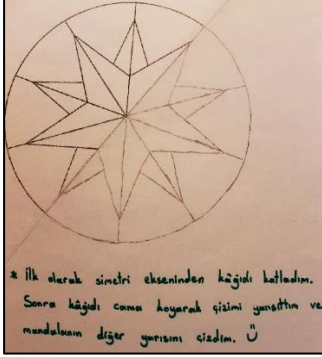 * İlk olarak simetri ekseninden kâğıdı katladım.
Sonra kâğıdı cama koyarak çizimi yansıttım ve
mandalanın diğer yarısını çizdim. Ü